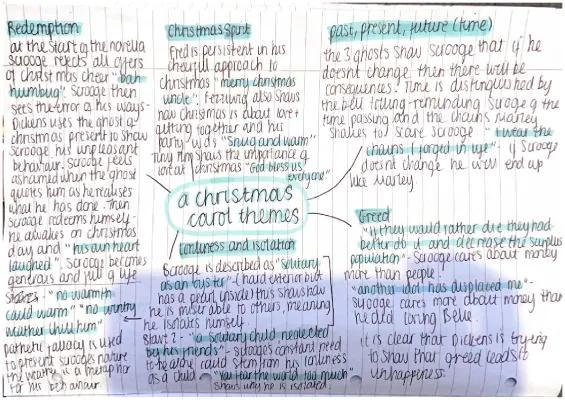 Redemption
at the start of the novella
scrooge rejects all offers
of christmas cheer "bah
humbug". Scrooge then
sees the error of his ways -
Dickens uses the ghost of
christmas present to show
scrooge his unpleasant
behaviour. scrooge feels
ashamed when the ghost
quotes him as he realises
what he has done. Then
scrooge redeems himself -
he awakes on christmas
day and "his own heart
laughed". Scrooge becomes
generous and full of life
"no warmth
could warm" "no wintry
weather chill him"
pathetic fallacy is used
to present scrooges nature
the weather is a metaphor
for his behaviour.
Christmas Spirit
Fred is persistent in his
cheerful approach to
christmas "merry christmas
uncle".
how christmas is about love +
getting together and his
party was "snug and warm"
tiny tim shows the importance of
christmas "God bless us,
everyone"
past, present, future (time)
the 3 ghosts show scrooge that if he
doesnt change then there will be
consequences. Time is distinguished by
the bell tolling - reminding Scrooge of the
time passing and the chains Marley
shakes to scare scrooge. "I wear the
chains I forged in life" - if scrooge
doesnt change he will end up
like Marley.
a christmas
carol themes
lonliness and isolation
Scrooge is described as "solitary
as an oyster" - (hard exterior but
has a pearl inside) this shows how
he is miserable to others, meaning
he isolates himself
Stave 2 - "a solitary child neglected
by his friends" - scrooges constant need
to be alone could stem from his lonliness
as a child "You fear the world too much"
shows why he is isolated.
Greed
"if they would rather die they had
better do it and decrease the surplus
population" - scrooge cares about money
more than people!
"another idol has displaced me" -
scrooge cares more about money than
he did loving Belle.
it is clear that Dickens is trying
to show that greed leads to
unhappiness.